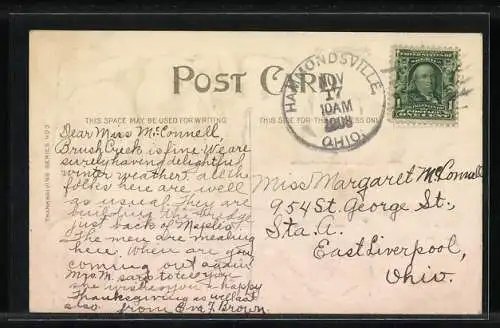 POST CARD
THIS SPACE MAY BE USED FOR WRITING
THIS SIDE IS FOR THE ADDRESS ONLY
THANKSGIVING SERIES 403
HAMMONDSVILLE
NOV
17
10AM
1908
OHIO.
1 1
ONE CENT
Dear Miss McConnell,
Brush Creek is fine. We are
surely having delightful
winter weather. All the
folks here are well
as usual. They are
building the bridge
just back of Maple's.
The men are mealing
here. When are you
coming out again.
Mrs. M. says to tell you
she wishes you a happy
Thanksgiving as well as I
also. from Eva F. Brown.
Miss Margaret McConnell
954 St. George St.,
Sta. A.
East Liverpool,
Ohio.